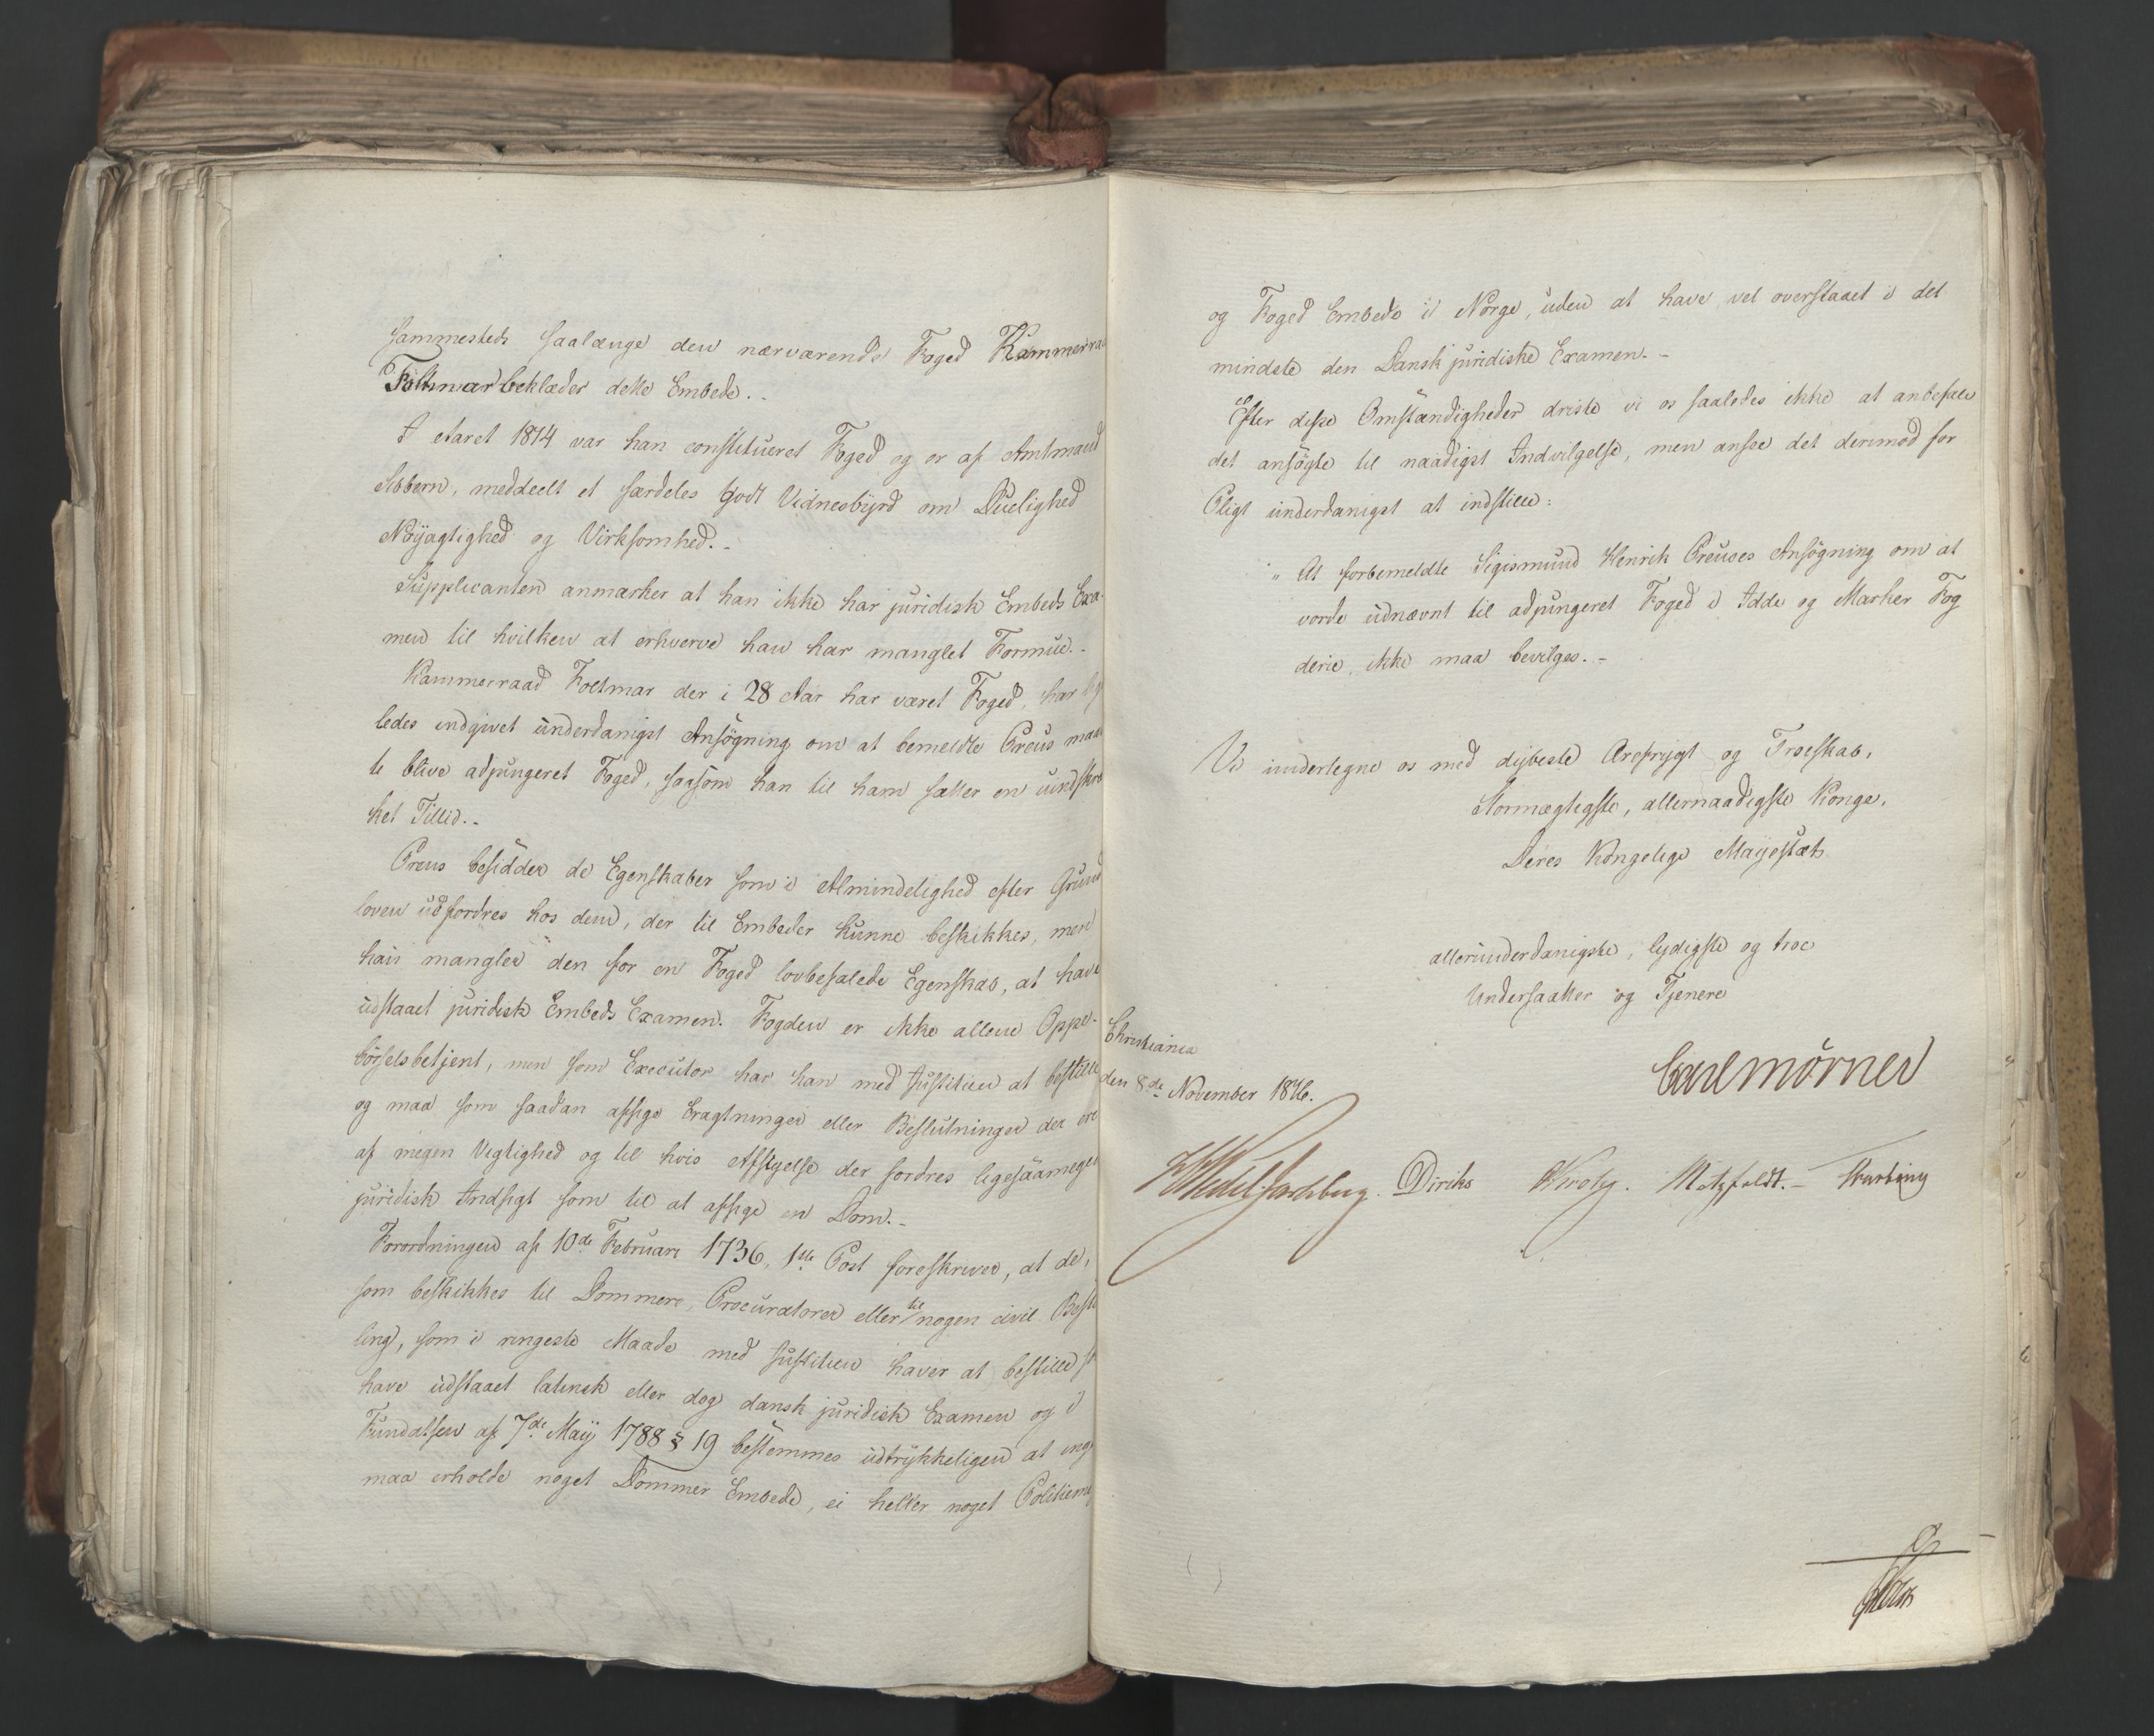 sammesteds saalænge den nærværende Foged Kammerraa
Foltmar beklæder dette Embede.-
I Aaret 1814 var han constitueret Foged og er af Amtmand
Sibbern, meddeelt et særdeles godt Vidnesbyrd om Duelighed
Nøyagtighed og Virksomhed.-
Supplicanten anmærker at han ikke har juridisk Embeds Exa-
men til hvilken at erhverve han har manglet Formue.-
Kammerraad Foltmar der i 28 Aar har været Foged, har lige
ledes indgivet underdanigst Ansøgning om at bemeldte Preus maat
te blive adjungeret Foged, saasom han til ham sætter en uindskræn
ket Tillid.-
Preus besidder de Egenskaber som i Almindelighed efter Grund
loven udfordres hos dem, der til Embeder kunne beskikkes, men
han mangler den for en Foged lovbefalede Egenskab, at have
udstaaet juridisk Embeds Examen. Fogden er ikke allene Oppe-
børselsbetjent, men som Executor har han med Justitien at bestille
og maa som saadan afsige Eragtninger eller Beslutninger der ere
af megen Vigtighed og til hvis Afsigelse der fordres ligesaameget
juridisk Indsigt som til at afsige en Dom.-
Forordningen af 10de Februari 1736, 1ste Post foreskriver, at de,
som beskikkes til Dommere, Procuratorer eller til nogen civil Bestil
ling, som i ringeste Maade med Justitien haver at bestille skal
have udstaaet latinsk eller dog dansk juridisk Examen og i
Fundatsen af 7de Maij 1788 § 19 bestemmes udtrykkeligen at ingen
maa erholde noget Dommer Embede, ei heller noget Politiemester
og Foged Embede i Norge, uden at have vel overstaaet i det
mindste den Dansk juridiske Examen.-
Efter disse Omstændigheder driste vi os saaledes ikke at anbefale
det ansøgte til naadigst Indvilgelse, men ansee det derimod for
Pligt underdanigst at indstille:
" At forbemeldte Sigismund Henrik Preuses Ansøgning om at
vorde udnævnt til adjungeret Foged i Idde og Marker Fog
derie, ikke maa bevilges.-
Vi undertegne os med dybeste Ærefrygt og Troeskab,
Stormægtigste, allernaadigste Konge,
Deres Kongelige Majestæts
allerunderdanigste, lydigste og troe
Undersaatter og Tjenere
Christiania
den 8de November 1816.
Carl Mörner
HWedel Jarlsberg. Diriks Krohg. Motzfeldt.-